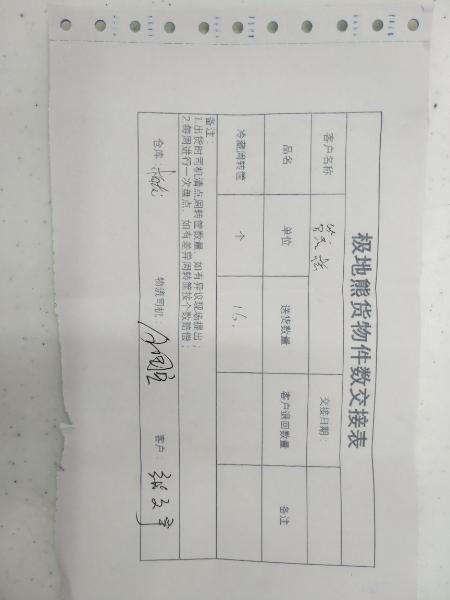 极地熊货物件数交接表
客户名称 交接日期：
品名 单位 送货数量 客户退回数量 备注
冷藏周转筐 个 16.
备注：
1.出货时司机清点周转筐数量，如有异议现场提出；
2.每周进行一次盘点，如有差异周转筐按个数赔偿；
仓库： 物流司机： 客户：